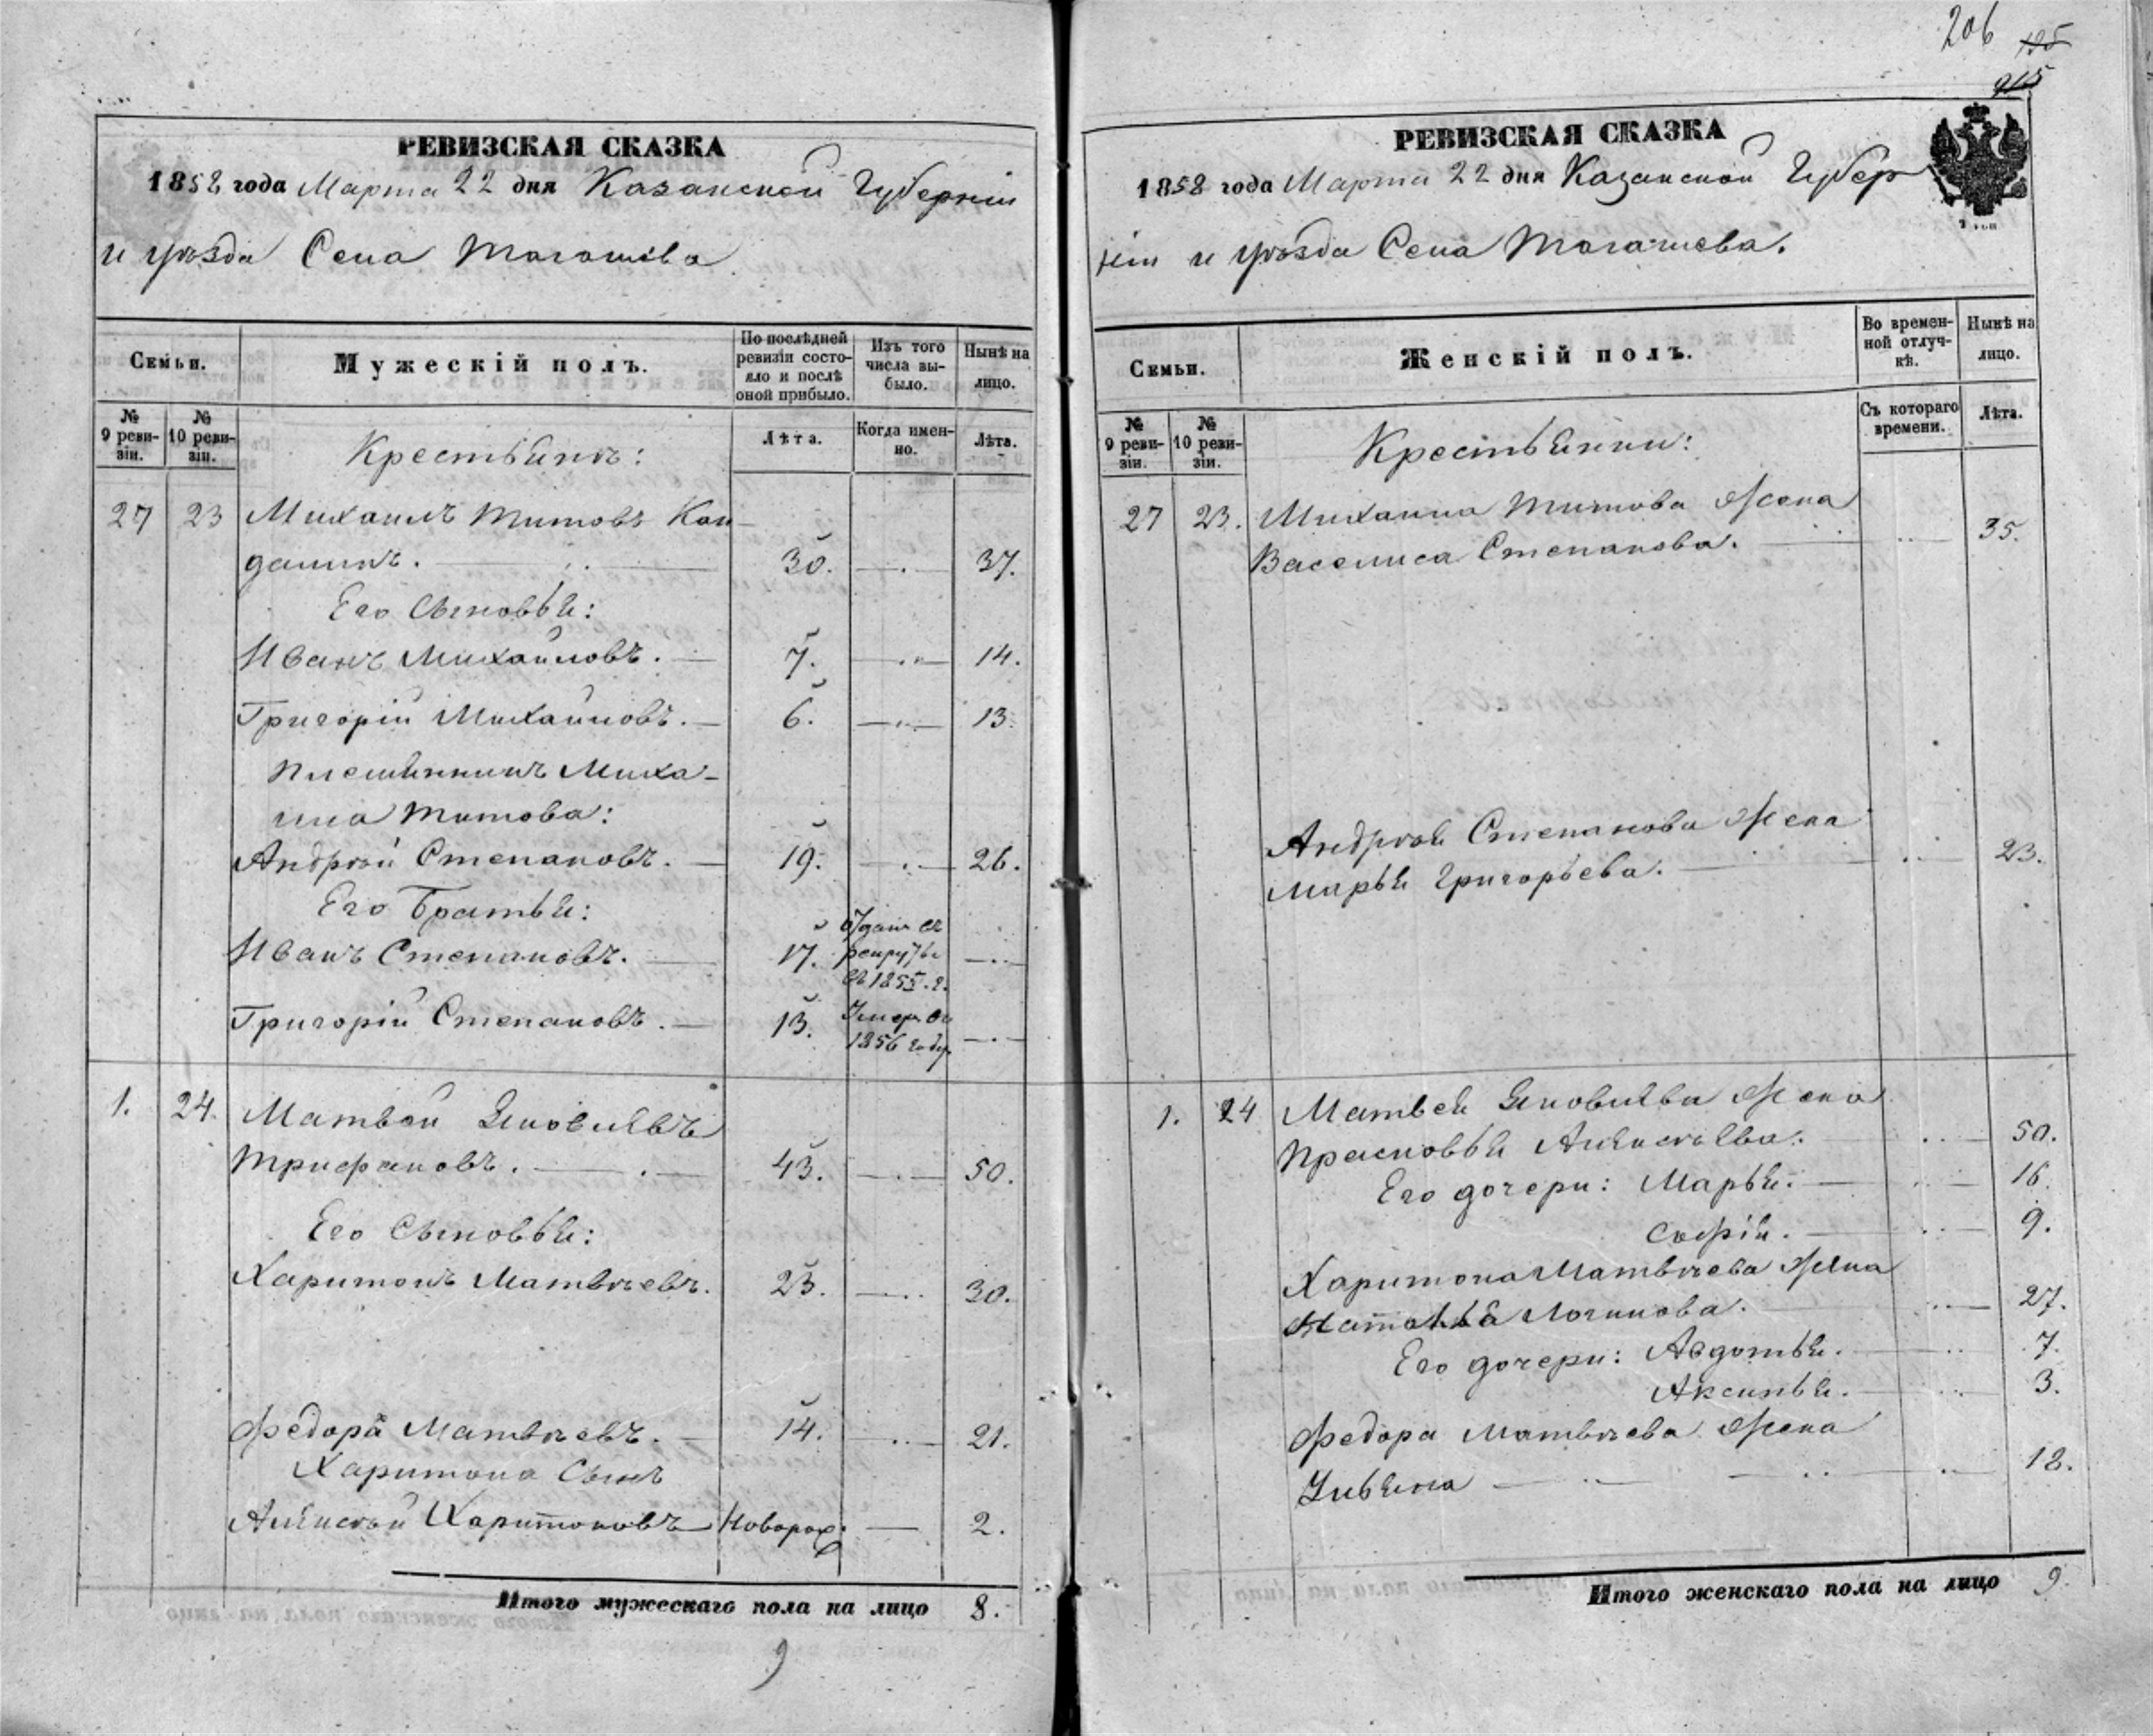 РЕВИЗСКАЯ СКАЗКА
1858 года Марта 22 дня Казанской Губерніи
и уѣзда Села Тагашева
Семьи.
Мужескій полъ.
По послѣдней ревизіи состояло и послѣ оной прибыло.
Изъ того числа выбыло.
Нынѣ на лицо.
№ 9 ревизіи.
№ 10 ревизіи.
Крестьянъ:
Лѣта.
Когда именно.
Лѣта.
27 23 Михаилъ Титовъ Кан
далинъ. 30. 37.
Его Сыновья:
Иванъ Михайловъ. 7. 14.
Григорій Михайловъ. 6. 13.
Племянники Миха-
ила Титова:
Андрей Степановъ. 19. 26.
Его Братья:
Иванъ Степановъ. 17. Отданъ въ рекруты въ 1855. г.
Григорій Степановъ. 13. Умеръ въ 1856 году.
1. 24. Матвей Яковлевъ
Трифановъ. 43. 50.
Его Сыновья:
Харитонъ Матвѣевъ. 23. 30.
Федоръ Матвѣевъ. 14. 21.
Харитона Сынъ
Алексѣй Харитоновъ Новорож: 2.
Итого мужескаго пола на лицо 8.
9
206 125
215
РЕВИЗСКАЯ СКАЗКА
1858 года Марта 22 дня Казанской Губер
ніи и уѣзда Села Тагашева.
Семьи.
Женскій полъ.
Во временной отлучкѣ.
Нынѣ на лицо.
№ 9 ревизіи.
№ 10 ревизіи.
Крестьянки:
Съ котораго времени.
Лѣта.
27 23. Михаила Титова жена
Василиса Степанова. 35.
Андрея Степанова жена
Марья Григорьева. 23.
1. 24 Матвея Яковлева жена
Прасковья Алексѣева. 50.
Его дочери: Марья. 16.
Софія. 9.
Харитона Матвѣева жена
Наталья Логинова. 27.
Его дочери: Авдотья. 7.
Аксинья. 3.
Федора Матвѣева жена
Ульяна 18.
Итого женскаго пола на лицо 9.